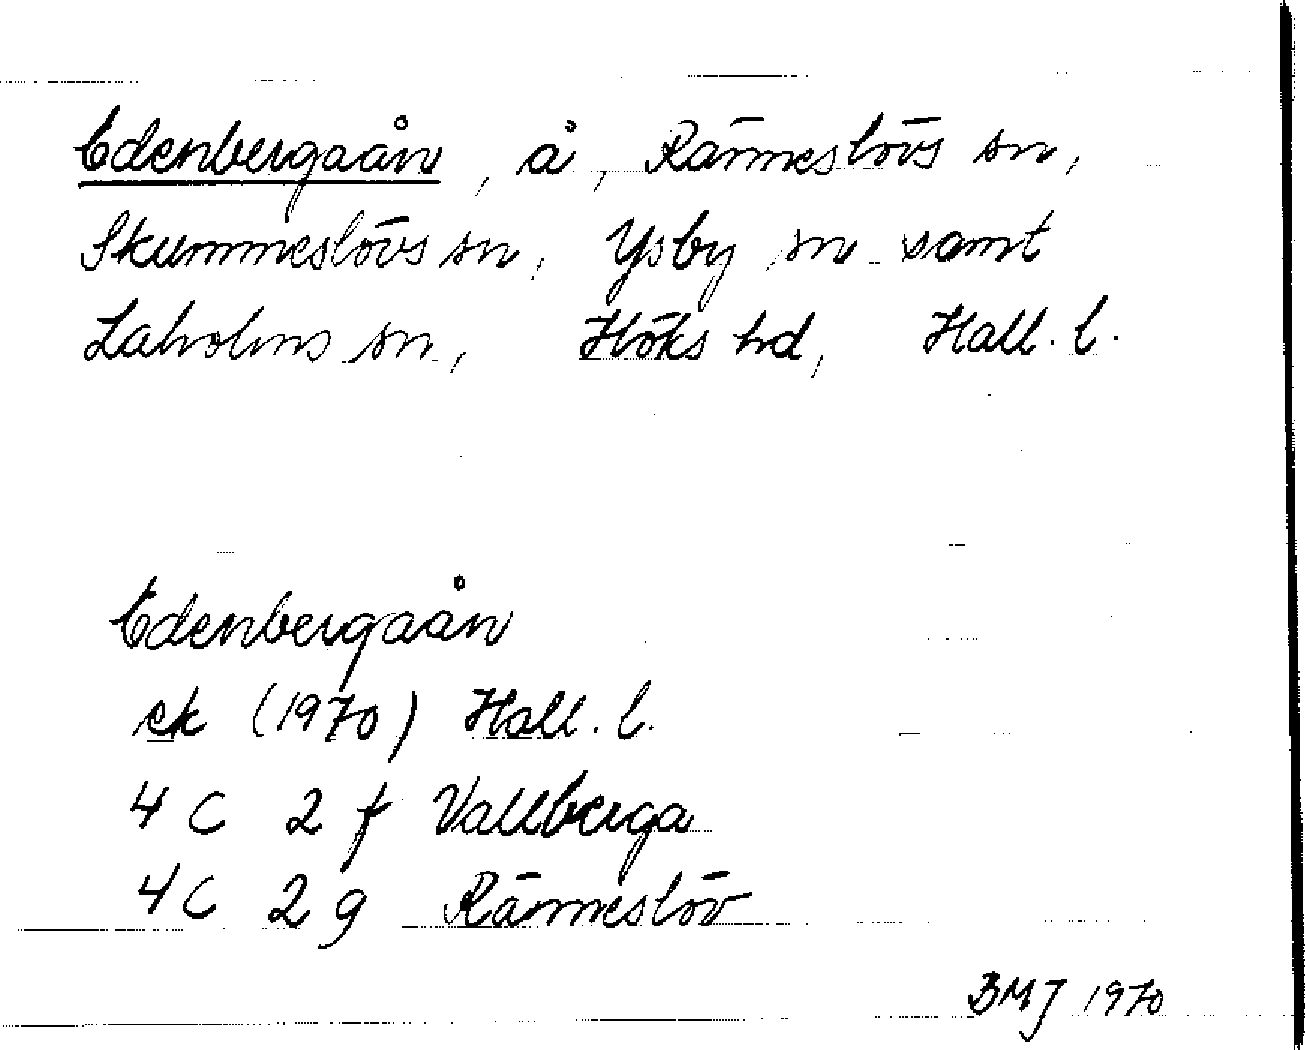 Edenbergaån, å, Ränneslövs sn,
Skummeslövs sn, Ysby sn samt
Laholms sn, Höks hd, Hall. l.
Edenbergaån
ek (1970) Hall. l.
4 C 2 f Vallberga
4 C 2 g Ränneslöv
BMJ 1970